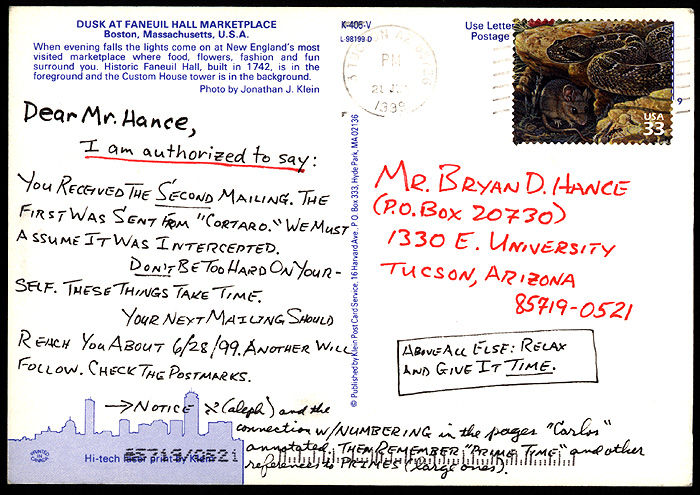 DUSK AT FANEUIL HALL MARKETPLACE
Boston, Massachusetts, U.S.A.
When evening falls the lights come on at New England's most
visited marketplace where food, flowers, fashion and fun
surround you. Historic Faneuil Hall, built in 1742, is in the
foreground and the Custom House tower is in the background.
Photo by Jonathan J. Klein
K-405-V
L-98199-D
Use Letter
Postage
PM
1999
USA
33
Dear Mr. Hance,
I am authorized to say:
YOU RECEIVED THE SECOND MAILING. THE
FIRST WAS SENT FROM "CORTARO." WE MUST
ASSUME IT WAS INTERCEPTED.
DON'T BE TOO HARD ON YOUR-
SELF. THESE THINGS TAKE TIME.
YOUR NEXT MAILING SHOULD
REACH YOU ABOUT 6/28/99. ANOTHER WILL
FOLLOW. CHECK THE POSTMARKS.
→ NOTICE ℵ (aleph) and the
connection w/NUMBERING in the pages "Carlos"
annotated. THEN REMEMBER "PRIME TIME" and other
references to PRIMES (large ones).
© Published by Klein Post Card Service, 16 Harvard Ave., P.O. Box 333, Hyde Park, MA 02136
MR. BRYAN D. HANCE
(P.O. BOX 20730)
1330 E. UNIVERSITY
TUCSON, ARIZONA
85719-0521
ABOVE ALL ELSE: RELAX
AND GIVE IT TIME.
PRINTED IN CANADA
Hi-tech laser print by Klein
85719/0521